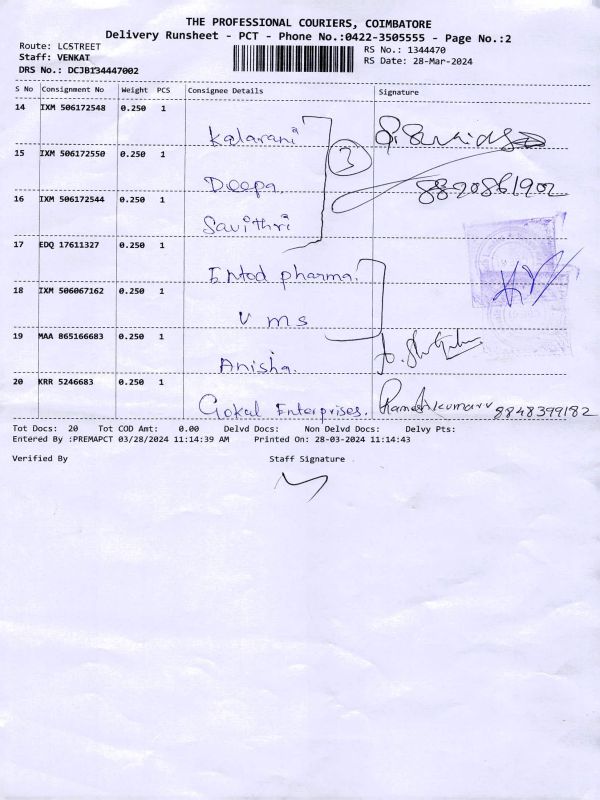 THE PROFESSIONAL COURIERS, COIMBATORE
Delivery Runsheet - PCT - Phone No.:0422-3505555 - Page No.:2
Route: LCSTREET
RS No.: 1344470
Staff: VENKAT
RS Date: 28-Mar-2024
DRS No.: DCJB134447002
S No Consignment No Weight PCS Consignee Details Signature
14 IXM 506172548 0.250 1
Kalarani
15 IXM 506172550 0.250 1
3
Deepa.
8820861902
16 IXM 506172544 0.250 1
Savithri
17 EDQ 17611327 0.250 1
Entod pharma.
18 IXM 506067162 0.250 1
V m s
19 MAA 865166683 0.250 1
Anisha.
20 KRR 5246683 0.250 1
Gokal Enterprises. Rameshkumar 8848399182
Tot Docs: 20 Tot COD Amt: 0.00 Delvd Docs: Non Delvd Docs: Delvy Pts:
Entered By :PREMAPCT 03/28/2024 11:14:39 AM Printed On: 28-03-2024 11:14:43
Verified By Staff Signature